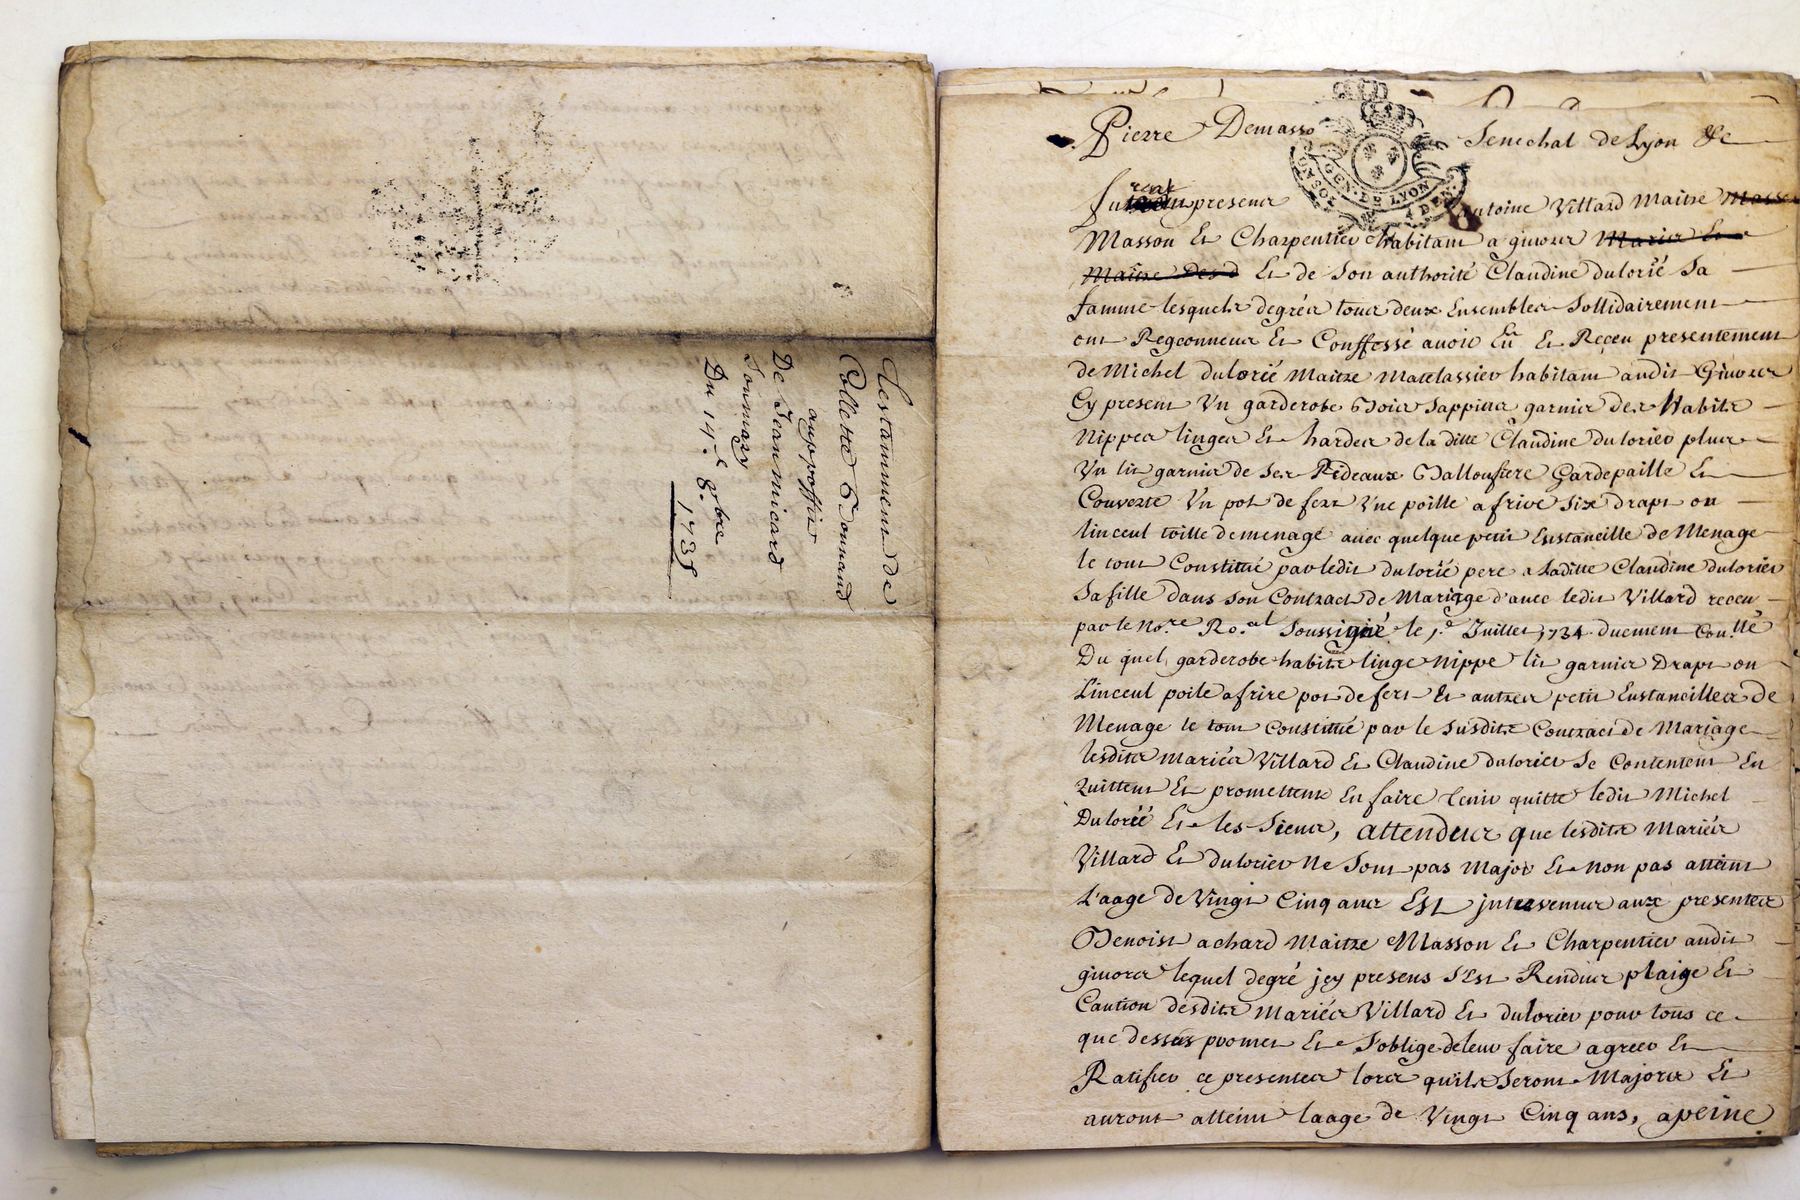 Testamment de
Collette Bonnand
au proffit
De Jean micard
Sommary
Du 14.e 8.bre
1735
Pierre Demasso Senechal de Lyon &c
GEN. DE LYON
furent presens Antoine Villard Maitre Masson
Masson Et Charpentier habitant a givors Marier Et
Maitre Des d Et de Son authorité Claudine dulorié Sa
famme lesquels degrés tous deux Ensembles Sollidairement
ont Regconneus Et Conffessé avoir Eu Et Reçeu presentement
de Michel dulorié Maitre Matelassier habitant audit Givors
Cy present Vn garderobe Bois Sappins garnie des Habits
Nippes linges Et hardes de la ditte Claudine dulorier plus
Vn lit garnie de Ses Rideaux Balloufiere Gardepaille Et
Couverte Vn pot de fert Vne poille a frire Six drapt ou
linceul toille de menage avec quelque petit Eustancille de Menage
le tout Constitué par ledit dulorié pere a Laditte Claudine dulorier
Sa fille dans Son Contract de Mariage d'avec ledit Villard receu
par le No.re Ro.al Soussigné le 1.e Juillet 1734 duement Con.llé
Du quel garderobe habits linge Nippe lit garnis Drapt ou
Linceul poile a frire pot de fert Et autres petit Eustancilles de
Menage le tout Constitué par le Susdits Contract de Mariage
lesdits Mariés Villard Et Claudine dulorier Se Contentent En
Quittent Et promettent En faire tenir quitte ledit Michel
Dulorié Et les Siens, attendus que lesdits Mariés
Villard Et dulorier Ne Sont pas Major Et non pas atteint
L'aage de Vingt Cinq ans Est jntervenus aux presentes
Benoist achard Maitre Masson Et Charpentier audit
givors lequel degré jcy present S'est Rendus plaige Et
Caution desdits Mariés Villard Et dulorier pour tous ce
que dessus promet Et S'oblige de leur faire agreer Et
Ratifier ce presentes lors qu'ils Seront Majors Et
auront atteint laage de Vingt Cinq ans, a peine